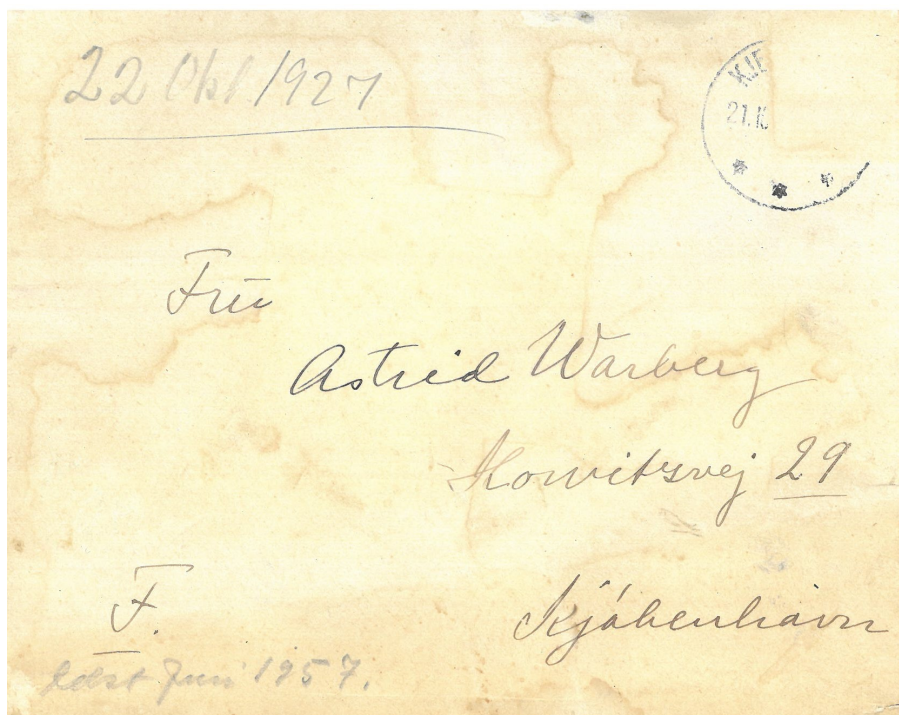 22 Okt 1927
21.1
Fru
Astrid Warberg
Howitzvej 29
F.
Kjøbenhavn
læst Juni 1957.